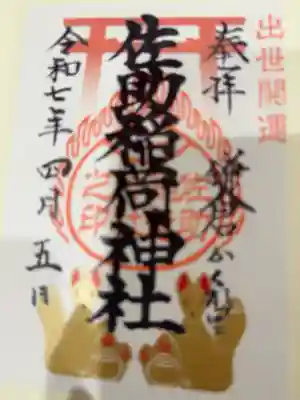 出世開運
奉拝
鎌倉かくれ里
佐助稲荷神社
令和七年四月五日